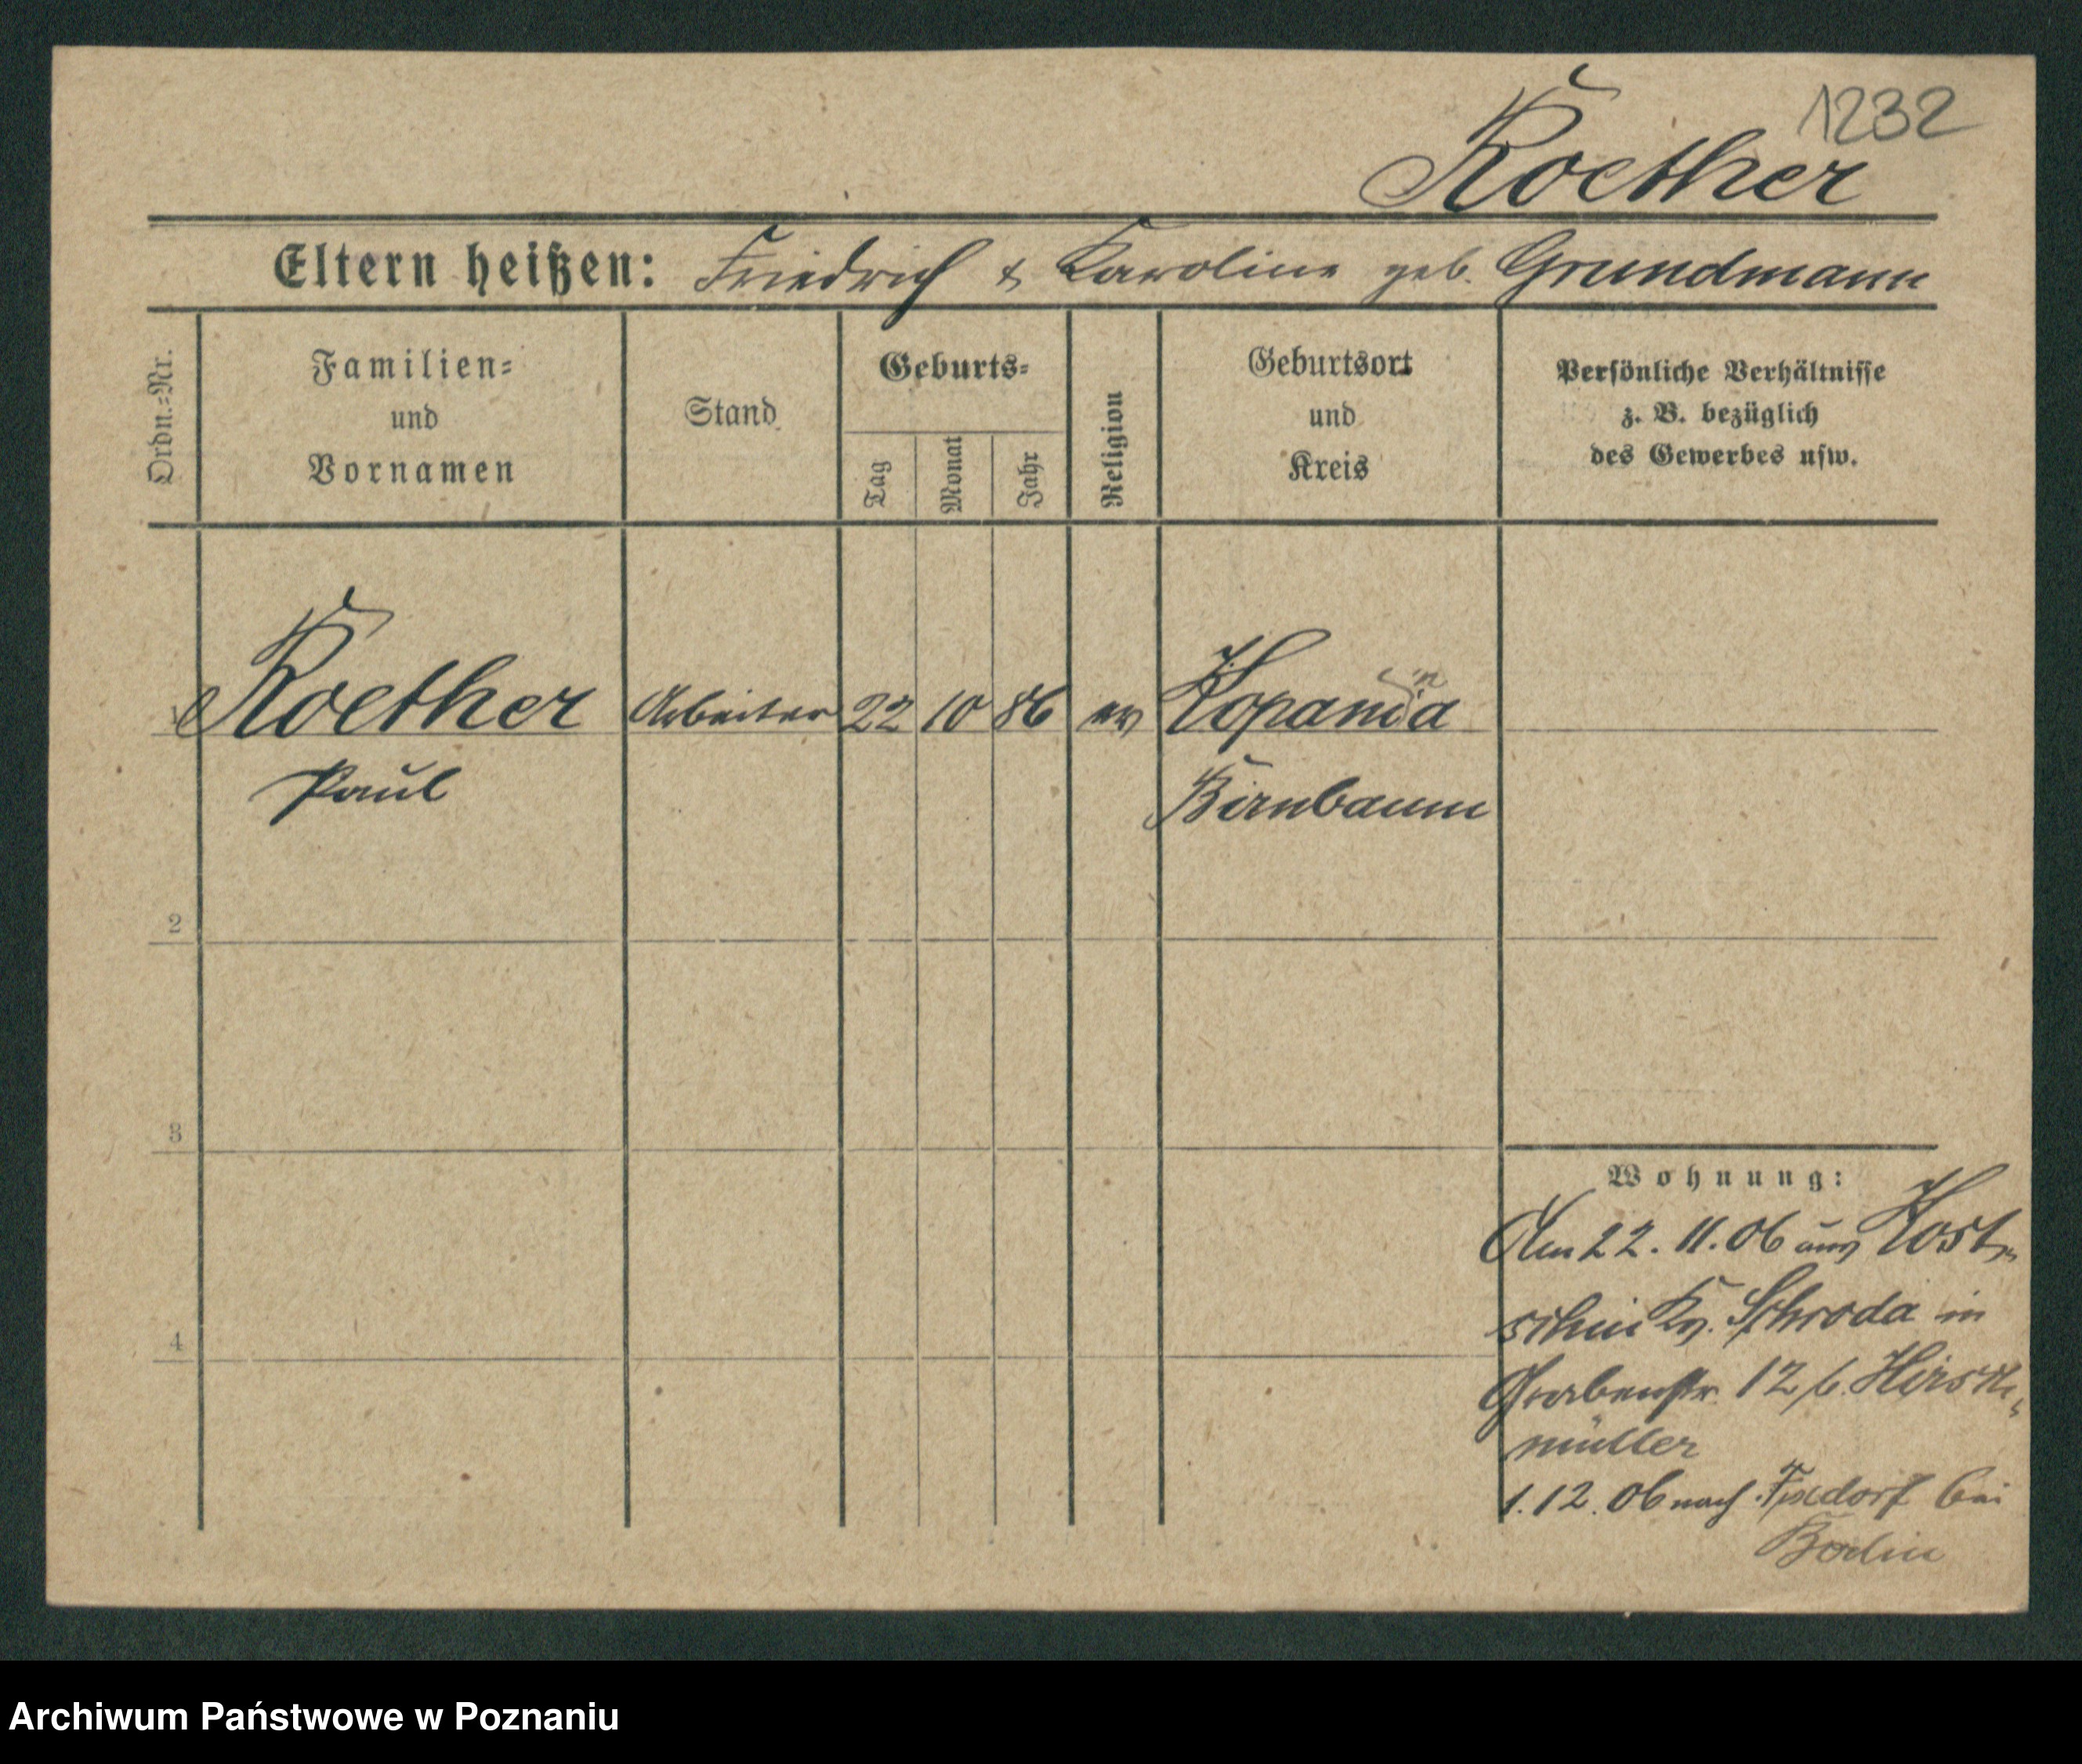 1232
Roether
Eltern heißen: Friedrich & Karoline geb. Grundmann
Ordn.-Nr.
Familien-
und
Vornamen
Stand
Geburts-
Tag
Monat
Jahr
Religion
Geburtsort
und
Kreis
Persönliche Verhältnisse
z. B. bezüglich
des Gewerbes usw.
1 Roether Arbeiter 22 10 86 ev
Paul Birnbaum
2
3
4
Wohnung:
Am 22. 11. 06 aus Kost-
schin Kr. Schroda in
Grabenstr. 12 b. Hirsch-
müller
1. 12. 06 nach bei
Berlin
Archiwum Państwowe w Poznaniu